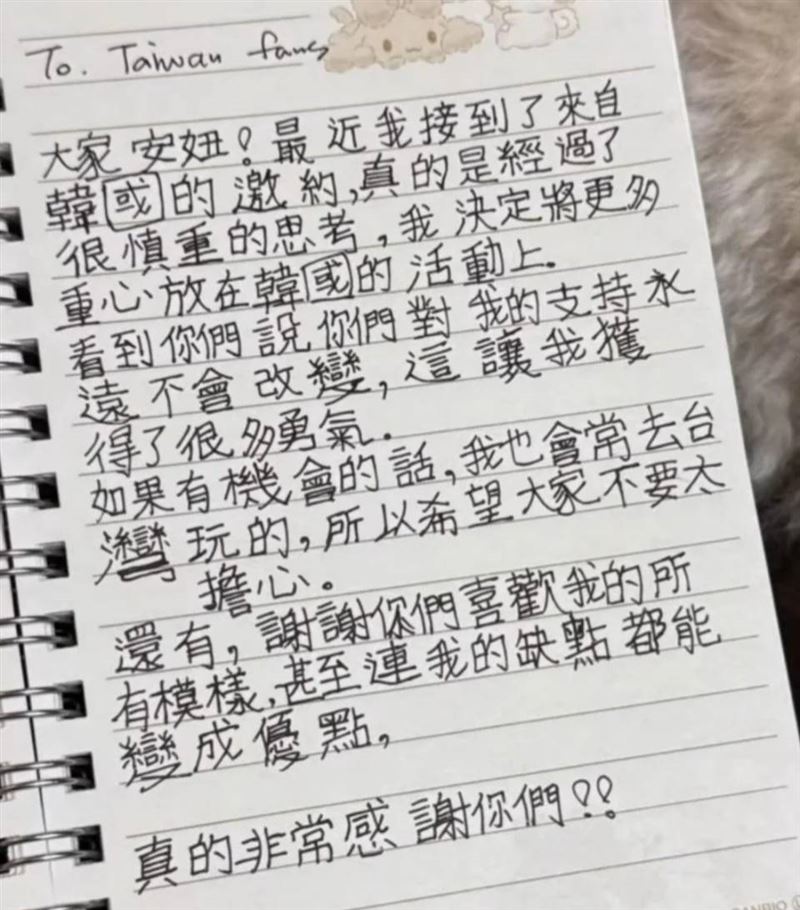 To. Taiwan fans
大家安妞！最近我接到了來自
韓國的邀約,真的是經過了
很慎重的思考,我決定將更多
重心放在韓國的活動上.
看到你們說你們對我的支持永
遠不會改變,這讓我獲
得了很多勇氣.
如果有機會的話,我也會常去台
灣玩的,所以希望大家不要太
擔心。
還有,謝謝你們喜歡我的所
有模樣,甚至連我的缺點都能
變成優點,
真的非常感謝你們!!